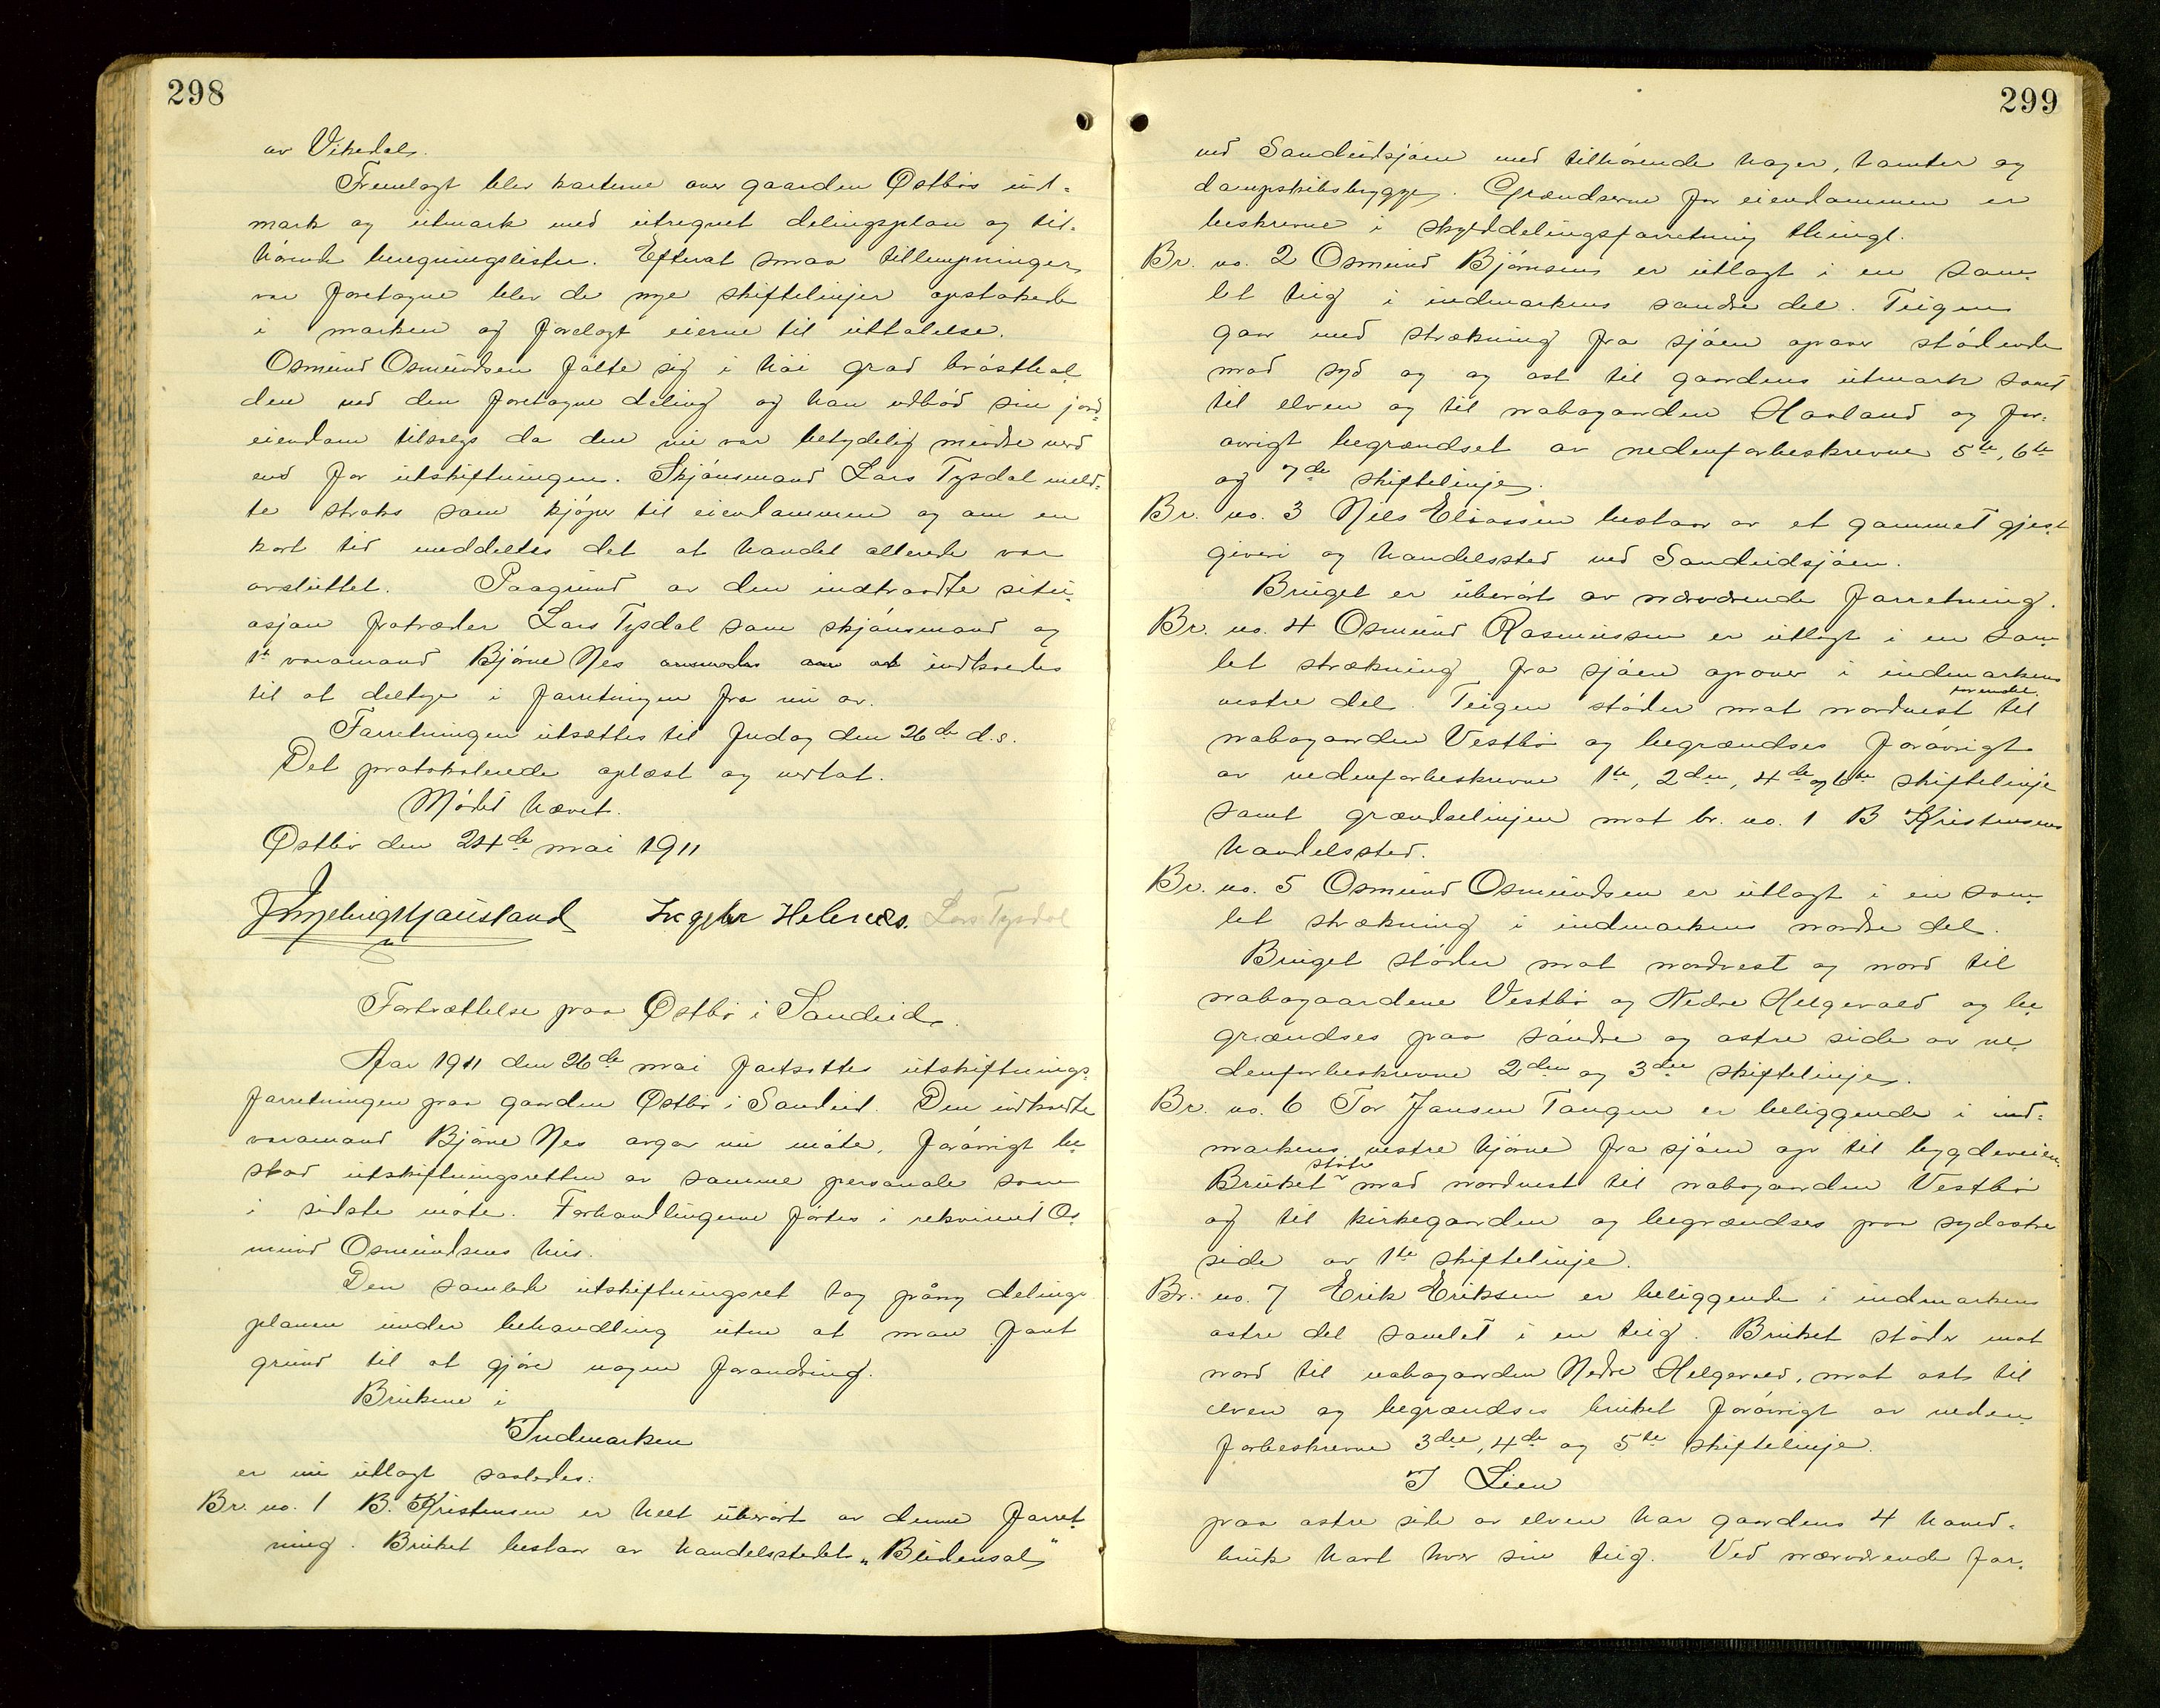 298
av Vikedal.
Fremlagt blev karterne over gaarden Østbø ind-
mark og utmark med utregnet delingsplan og til-
hørende beregningslister. Efterat smaa tillempninger
var foretagne blev de nye skiftelinjer opstakede
i marken og forelagt eierne til uttalelse.
Osmund Osmundsen følte sig i høi grad brøsthol-
den ved den foretagne deling og han udbød sin jord-
eiendom tilsalgs da den nu var betydelig mindre verd
end før utskiftningen. Skjønsmand Lars Tysdal meld-
te straks som kjøper til eiendommen og om en
kort tid meddeltes det at handel allerede var
avsluttet. Paagrund av den indtraadte situ-
asjon fratræder Lars Tysdal som skjønsmand og
1st varamand Bjørne Nes indkaldes
til at deltage i forretningen fra nu av.
Forretningen utsættes til fredag den 26de d.s.
Det protokolerede oplæst og vedtat.
Mødet hævet.
Østbø den 24de mai 1911
Ingebrigt Helenæs. Lars Tysdal
Fortsættelse paa Østbø i Sandeid.
Aar 1911 den 26de mai fortsattes utskiftnings-
forretningen paa gaarden Østbø i Sandeid. Den indkaldte
varamand Bjørne Nes avgav nu møte, forøvrigt be-
stod utskiftningsretten av samme personale som
i sidste møte. Forhandlingerne førtes i rekvirent Os-
mund Osmundsens hus.
Den samlede utskiftningsret tog påny delings-
planen under behandling uten at man fant
grund til at gjøre nogen forandring.
Brukene i
Indmarken
er nu utlagt saaledes:
Br. no. 1 B. Kristensen er helt uberørt av denne forret-
ning. Bruket bestaar av handelsstedet „Blidensol"
299
ved Sandeidsjøen med tilhørende hager, tomter og
dampskibsbrygge. Grændserne for eiendommen er
beskrevne i skylddelingsforretning thingl.
Br. no. 2 Osmund Bjørnsens er utlagt i en sam-
let teig i indmarkens søndre del. Teigen
gaar med strækning fra sjøen opover stødende
mod syd og og øst til gaardens utmark samt
til elven og til nabogaarden Haaland og for-
øvrigt begrændset av nedenforbeskrevne 5te, 6te
og 7de skiftelinje.
Br. no. 3 Nils Eliassen bestaar av et gammelt gjest-
giveri og handelssted ved Sandeidsjøen.
Bruget er uberørt av nærværende forretning.
Br. no. 4 Osmund Rasmussen er utlagt i en sam-
let strækning fra sjøen opover i indmarkens
vestre del. Teigen støder mot nordvest for endel til
nabogaarden Vestbø og begrændses forøvrigt
av nedenforbeskrevne 1te, 2den, 4de og 6te skiftelinje
samt grændselinjen mot br. no. 1 B Kristensens
handelssted.
Br. no. 5 Osmund Osmundsen er utlagt i en sam-
let strækning i indmarkens nordre del.
Bruget støder mot nordvest og nord til
nabogaardene Vestbø og Nedre Helgevold og be-
grændses paa søndre og østre side av ne-
denforbeskrevne 2den og 3die skiftelinje.
Br. no. 6 Tor Jansen Tangen er beliggende i ind-
markens vestre hjørne fra sjøen op til bygdeveien.
Bruket støder mod nordvest til nabogaarden Vestbø
og til kirkegaarden og begrændses paa sydøstre
side av 1te skiftelinje.
Br. no. 7 Erik Eriksen er beliggende i indmarkens
østre del samlet i en teig. Bruket støder mot
nord til nabogaarden Nedre Helgevold, mot øst til
elven og begrændses bruket forøvrigt av neden-
forbeskrevne 3die, 4de og 5te skiftelinje.
I Lien
paa østre side av elven har gaardens 4 hoved-
bruk havt hver sin teig. Ved nærværende for-